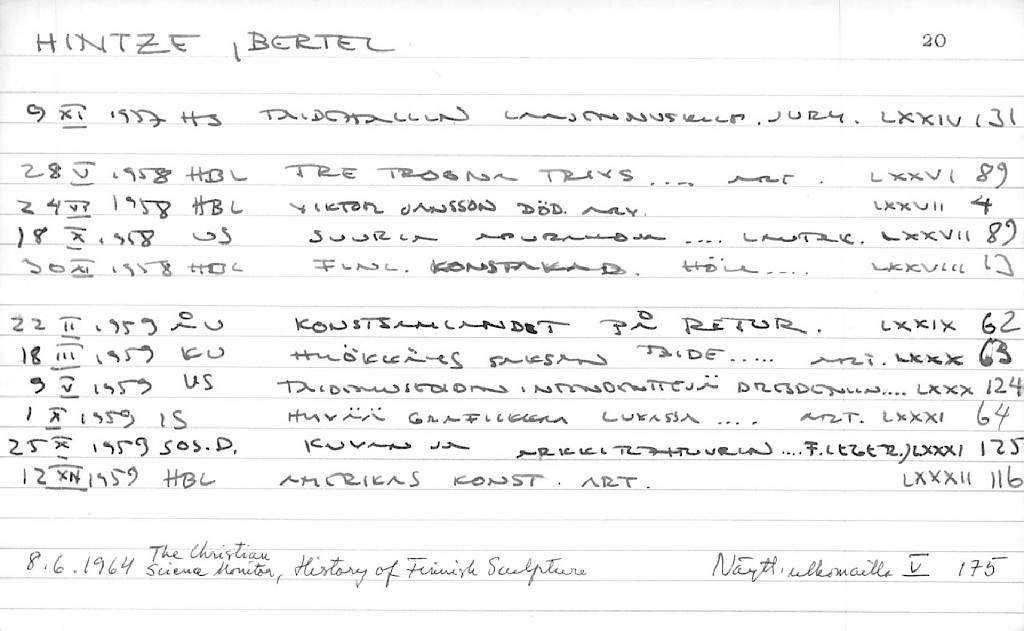 HINTZE, BERTEL 20
9 XI 1957 HS TAIDEHALLIN LAAJENNUSKILP. JURY. LXXIV 131
28 V 1958 HBL TRE TROGNA TRIVS .... ART. LXXVI 89
24 VI 1958 HBL VIKTOR JANSSON DÖD. ART. LXXVII 4
18 X 1958 US SUURIA APURAHOJA .... LAUTAK. LXXVII 89
30 XI 1958 HBL FINL. KONSTAKAD. HÖLL .... LXXVIII 13
22 II 1959 ÅU KONSTSAMLANDET PÅ RETUR. LXXIX 62
18 III 1959 KU SAKSAN TAIDE ..... ART. LXXX 63
9 V 1959 US TAIDEMUSEOIDEN INTENDENTTEJÄ DRESDENIIN .... LXXX 124
1 X 1959 IS HYVÄÄ GRAFIIKKAA .... ART. LXXXI 64
25 X 1959 SOS.D. KUVAN JA ARKKITEHTUURIN .... F. LEGER.) LXXXI 125
12 XII 1959 HBL AMERIKAS KONST. ART. LXXXII 116
8.6.1964 The Christian Science Monitor, History of Finnish Sculpture Näytt. ulkomailla V 175